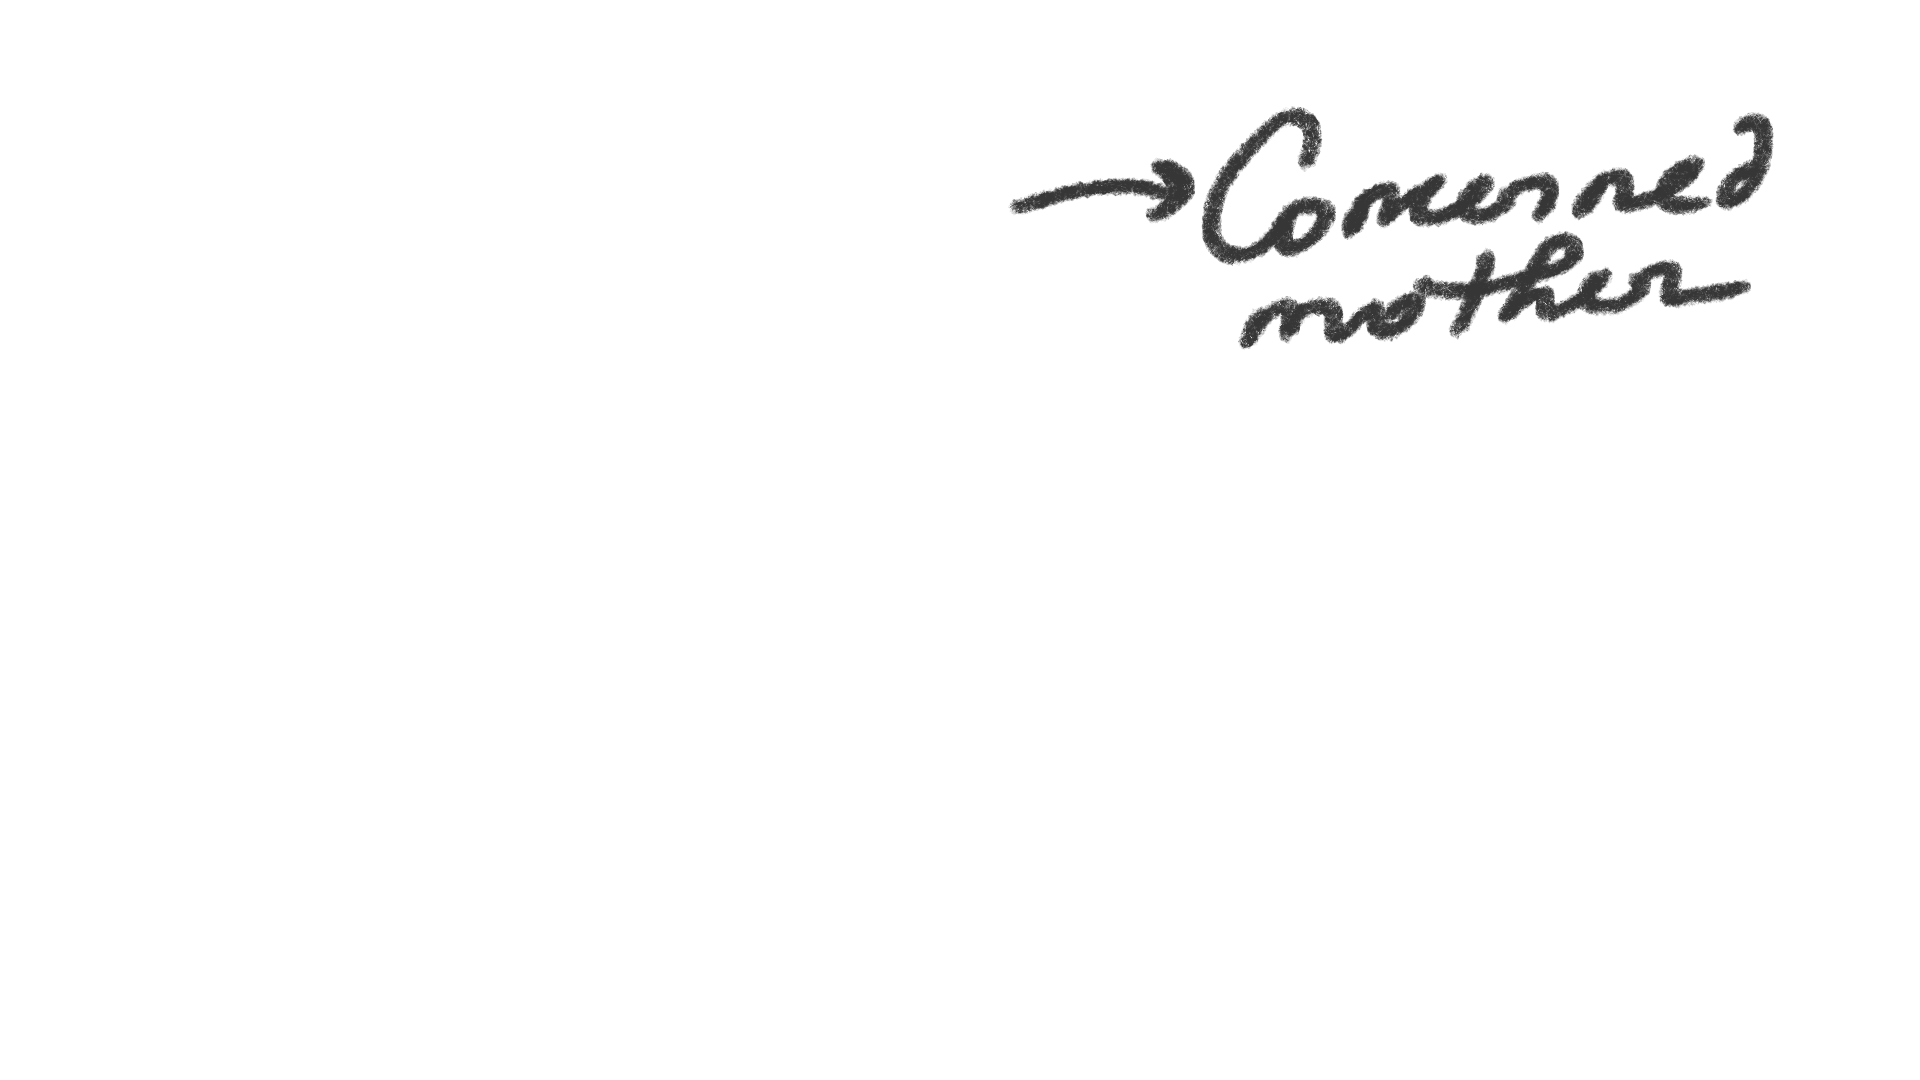 → Concerned
mother